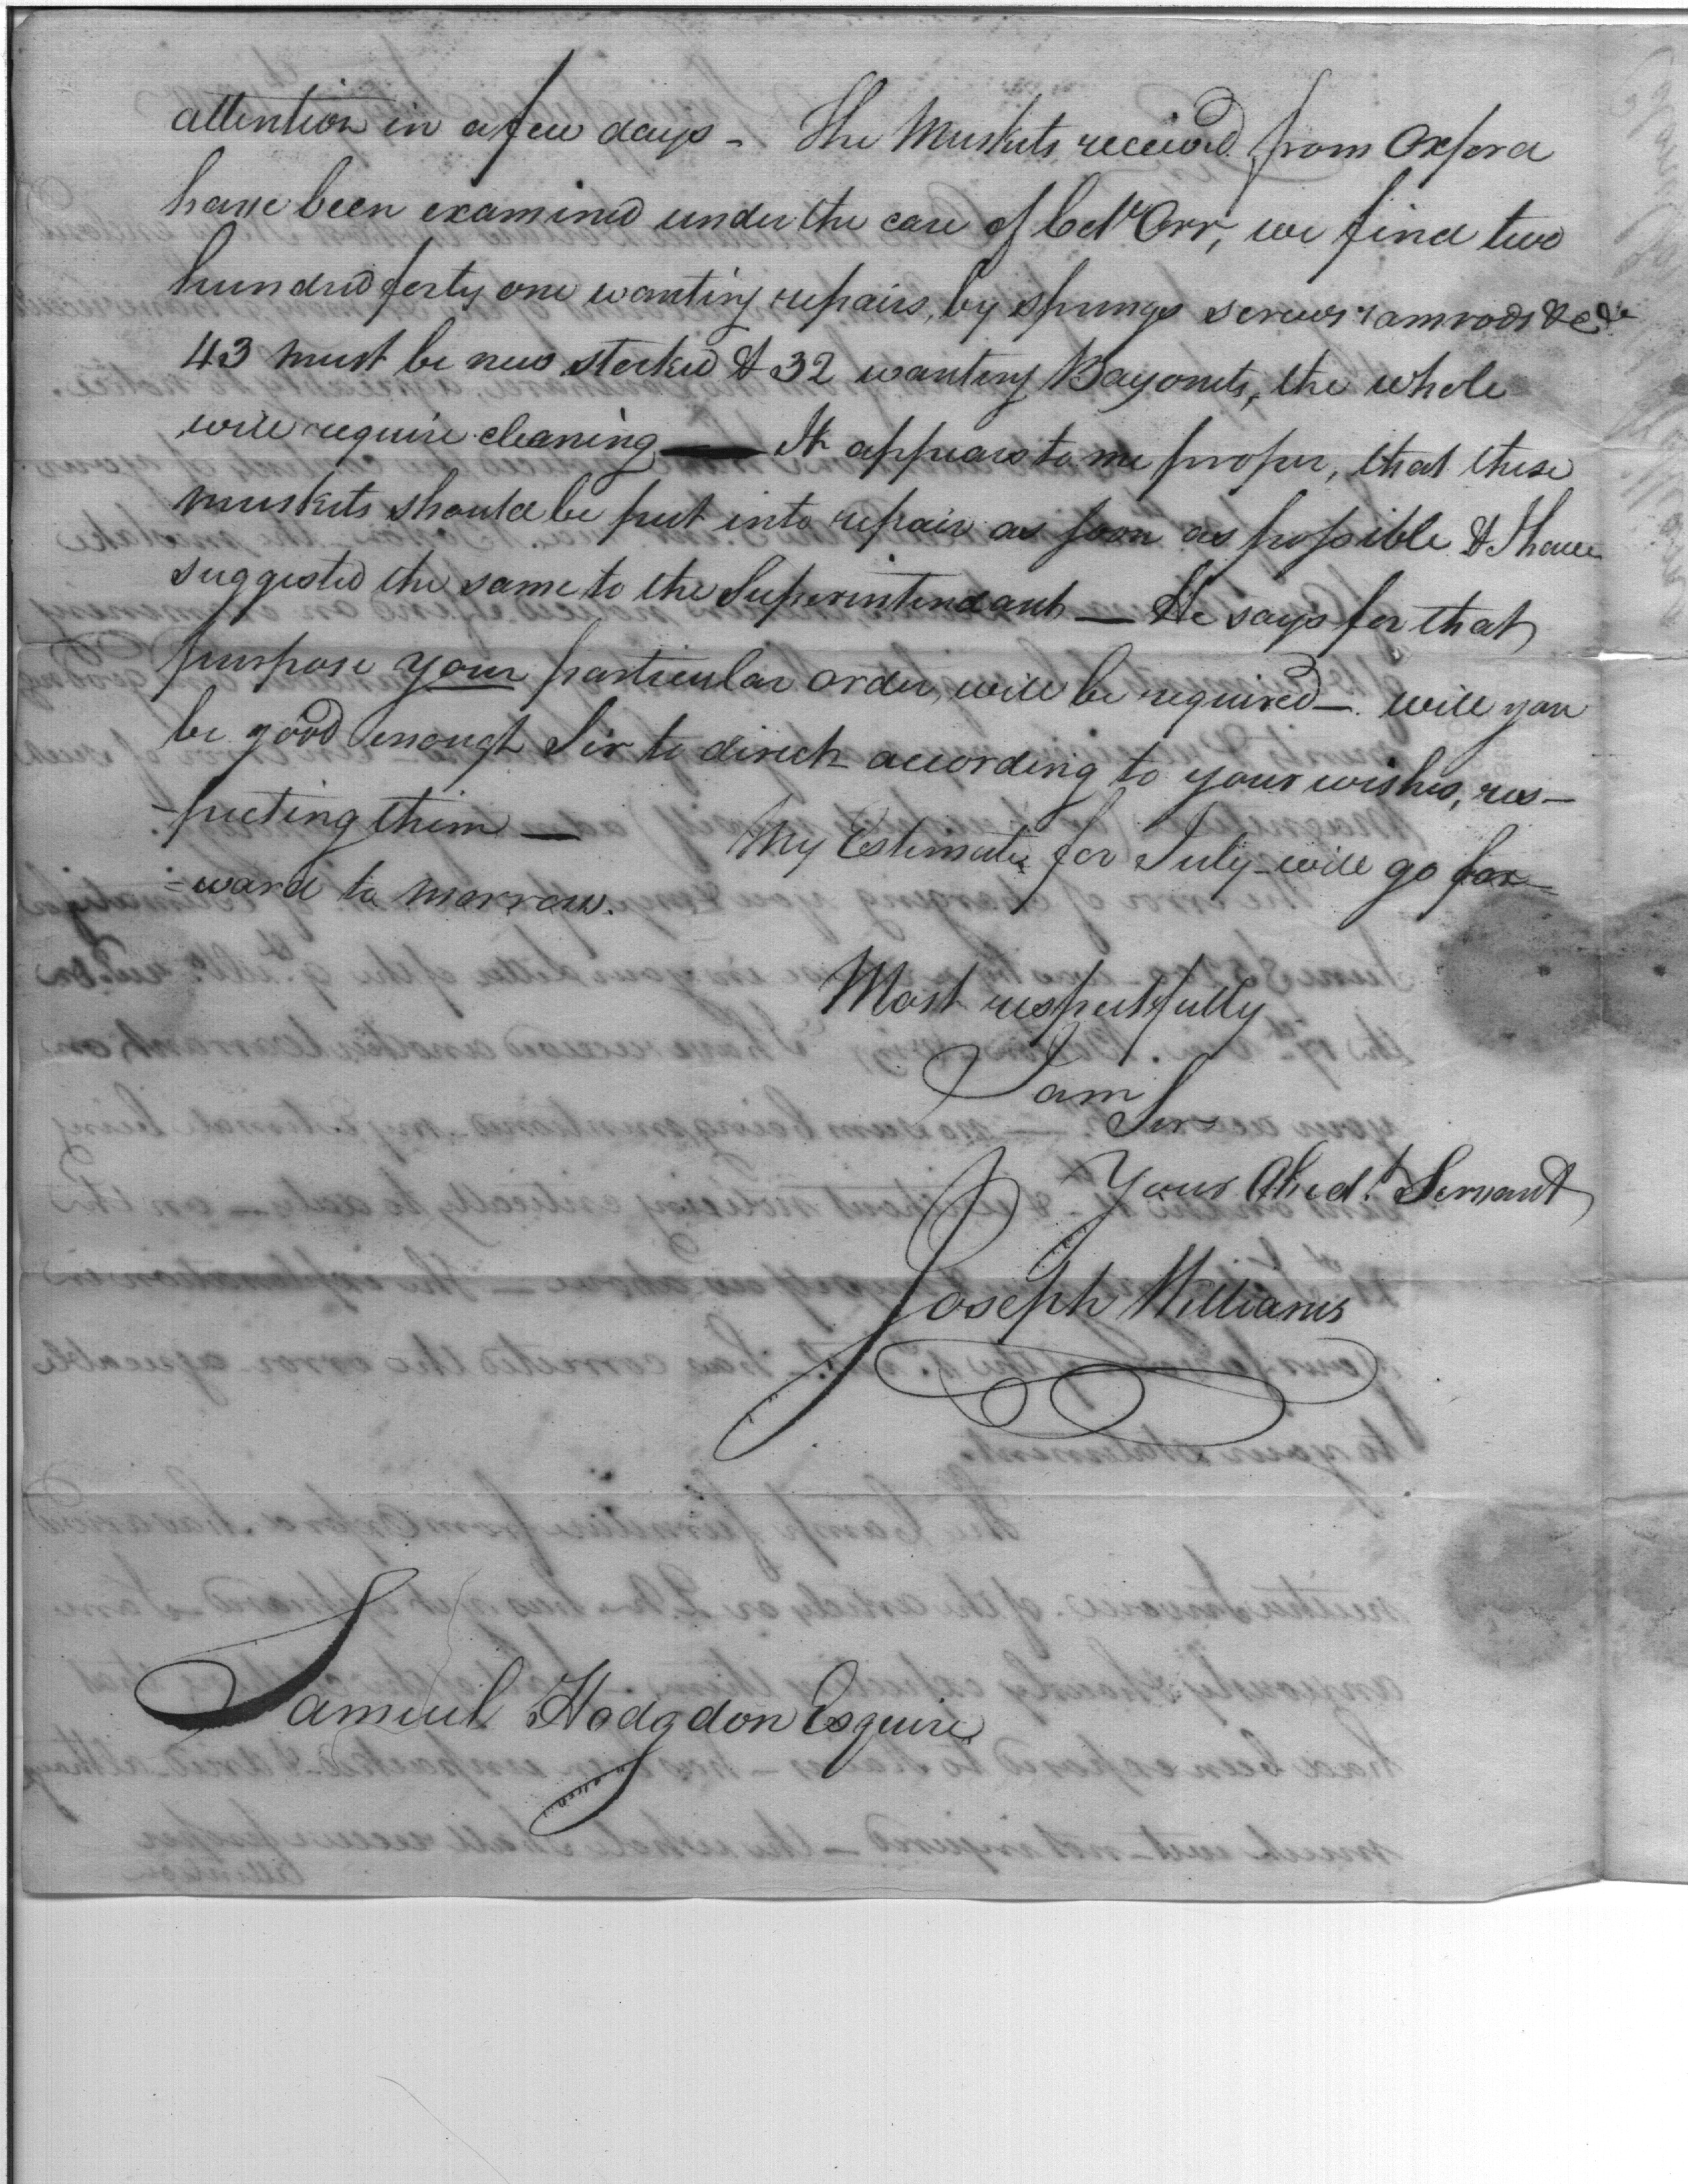 attention in a few days - The Muskets received from Oxford
have been examined under the care of Col.º Orr, we find two
hundred forty one wanting repairs, by springs screws ramrods &c &c
43 must be new stocked & 32 wanting Bayonets, the whole
will require cleaning — It appears to me proper, that these
muskets should be put into repair as soon as possible & I have
suggested the same to the Superintendant — He says for that
purpose your particular order, will be required —. will you
be good enough Sir to direct according to your wishes, res-
-pecting them — My Estimate for July will go for-
=ward to morrow.
Most respectfully
I am
Sir
Your Obed.t Servant
Joseph Williams
Samuel Hodgdon Esquire